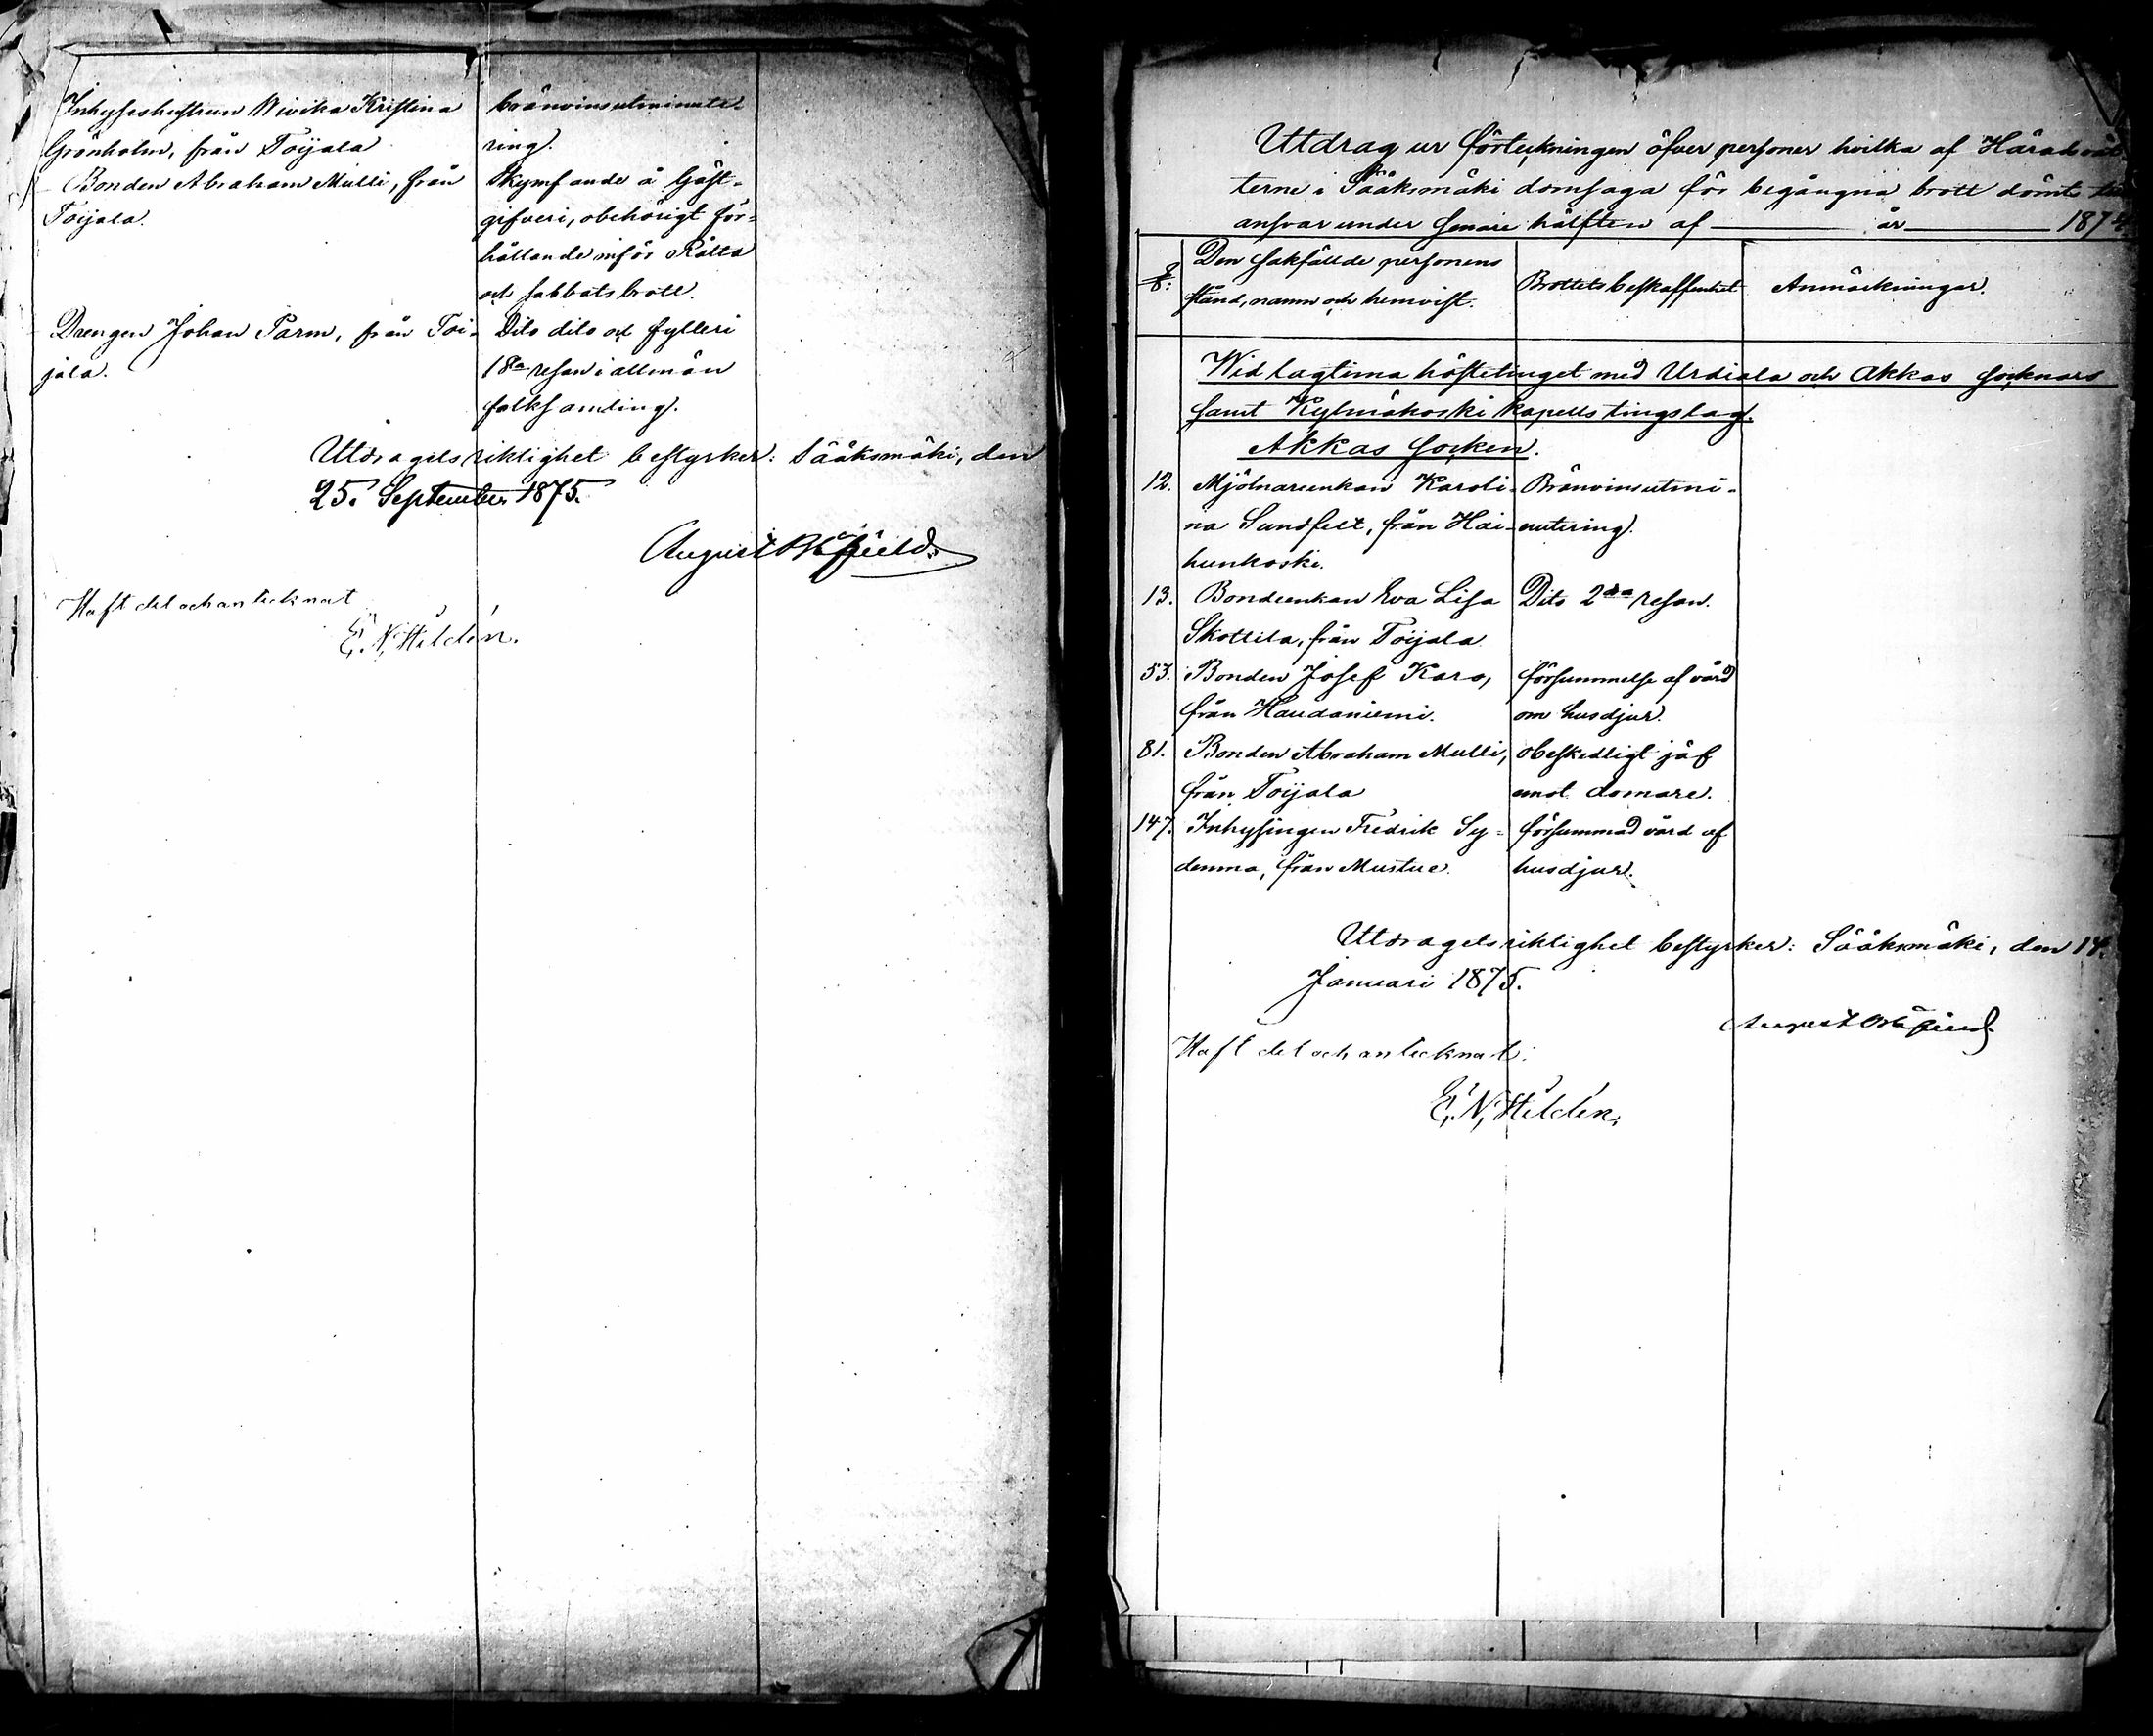 Inhyseshustrun Wivika Kristina
Grönholm, från Toijala
bränvinsutminute-
ring.
Bonden Abraham Mulli, från
Toijala.
Skymfande å Gäst-
gifveri, obehörigt för-
hållande inför Rätta
och sabbatsbrott.
Drengen Johan Parm, från Toi-
jala.
Dito dito och fylleri
1sta resan i allmän
folksamling.
Utdragets riktighet bestyrker: Sääksmäki, den
25. September 1875.
August
Haft del och antecknat
E. N. Hildén.
Utdrag ur förteckningen öfver personer hvilka af Häradsrät-
terne i Sääksmäki domsaga för begångna brott dömts
ansvar under senare hälften af år 1874
§
8:
Den sakfällde personens
stånd, namn och hemvist.
Brottets beskaffenhet
Anmärkningar.
Wid lagtima höstetinget med Urdiala och Akkas socknars
samt Kylmäkoski kapells tingslag.
Akkas socken.
12. Mjölnareenkan Karoli-
na Sundfelt, från Hai-
hunkoski.
Bränvinsutmi-
nutering.
13. Bondeenkan Eva Lisa
Skottila, från Toijala
Dito 2dra resan.
53. Bonden Josef Karo,
från Haudaniemi.
försummelse af vård
om husdjur.
81. Bonden Abraham Mulli,
från Toijala
obeskedligt jäf
emot domare.
147. Inhysingen Fredrik Sy-
denma, från Mustue.
försummad vård af
husdjur.
Utdragets riktighet bestyrker: Sääksmäki, den 14.
Januari 1875.
August
Haft del och antecknat:
E. N. Hildén.